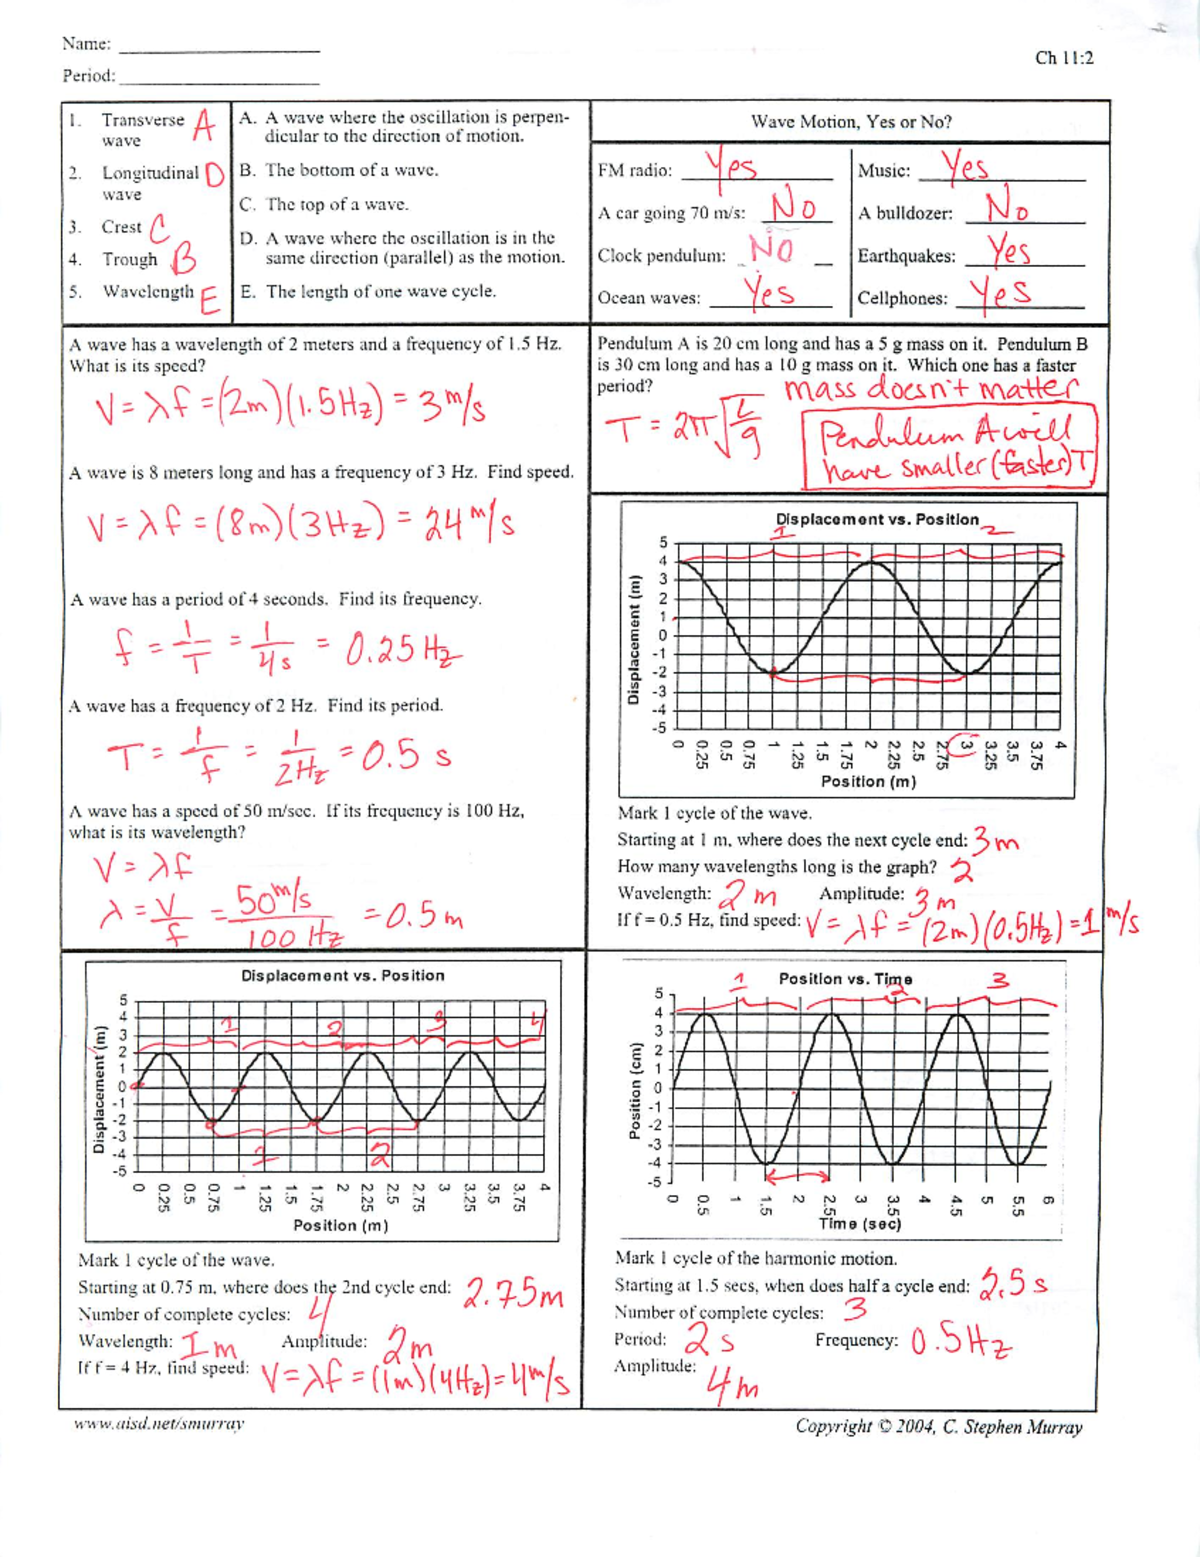 Name:
Period:
Ch 11:2
1. Transverse wave A
2. Longitudinal wave D
3. Crest C
4. Trough B
5. Wavelength E
A. A wave where the oscillation is perpen-
dicular to the direction of motion.
B. The bottom of a wave.
C. The top of a wave.
D. A wave where the oscillation is in the
same direction (parallel) as the motion.
E. The length of one wave cycle.
Wave Motion, Yes or No?
FM radio: Yes
A car going 70 m/s: No
Clock pendulum: NO
Ocean waves: Yes
Music: Yes
A bulldozer: No
Earthquakes: Yes
Cellphones: Yes
A wave has a wavelength of 2 meters and a frequency of 1.5 Hz.
What is its speed?
V = λf = (2m)(1.5Hz) = 3 m/s
A wave is 8 meters long and has a frequency of 3 Hz. Find speed.
V = λf = (8m)(3Hz) = 24 m/s
A wave has a period of 4 seconds. Find its frequency.
f = 1/T = 1/4s = 0.25 Hz
A wave has a frequency of 2 Hz. Find its period.
T = 1/f = 1/2Hz = 0.5 s
A wave has a speed of 50 m/sec. If its frequency is 100 Hz,
what is its wavelength?
V = λf
λ = V/f = 50 m/s / 100 Hz = 0.5 m
Pendulum A is 20 cm long and has a 5 g mass on it. Pendulum B
is 30 cm long and has a 10 g mass on it. Which one has a faster
period?
mass doesn't matter
T = 2π√L/g
Pendulum A will
have smaller (faster) T
Displacement vs. Position
1 2
Displacement (m)
5
4
3
2
1
0
-1
-2
-3
-4
-5
0 0.25 0.5 0.75 1 1.25 1.5 1.75 2 2.25 2.5 2.75 3 3.25 3.5 3.75 4
Position (m)
Mark 1 cycle of the wave.
Starting at 1 m, where does the next cycle end: 3m
How many wavelengths long is the graph? 2
Wavelength: 2m Amplitude: 3m
If f = 0.5 Hz, find speed: V = λf = (2m)(0.5Hz) = 1 m/s
Displacement vs. Position
Displacement (m)
5
4
3
2
1
0
-1
-2
-3
-4
-5
1 2 3 4
1 2
0 0.25 0.5 0.75 1 1.25 1.5 1.75 2 2.25 2.5 2.75 3 3.25 3.5 3.75 4
Position (m)
Mark 1 cycle of the wave.
Starting at 0.75 m, where does the 2nd cycle end: 2.75m
Number of complete cycles: 4
Wavelength: 1m Amplitude: 2m
If f = 4 Hz, find speed: V = λf = (1m)(4Hz) = 4 m/s
Position vs. Time
1 2 3
Position (cm)
5
4
3
2
1
0
-1
-2
-3
-4
-5
0 0.5 1 1.5 2 2.5 3 3.5 4 4.5 5 5.5 6
Time (sec)
Mark 1 cycle of the harmonic motion.
Starting at 1.5 secs, when does half a cycle end: 2.5 s
Number of complete cycles: 3
Period: 2s Frequency: 0.5Hz
Amplitude: 4m
www.aisd.net/smurray
Copyright © 2004, C. Stephen Murray